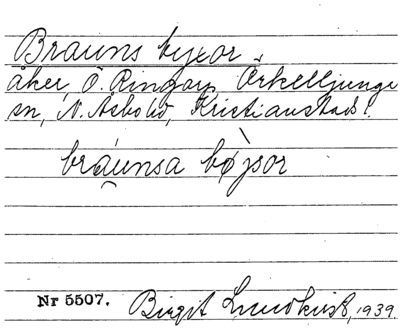 Brauns byxor.
åker, Ö. Ringarp, Örkelljunga
sn, N. Åsbo hd, Kristianstads l.
bráunsa bøjsor
Nr 5507. Birgit Lundkvist, 1939.